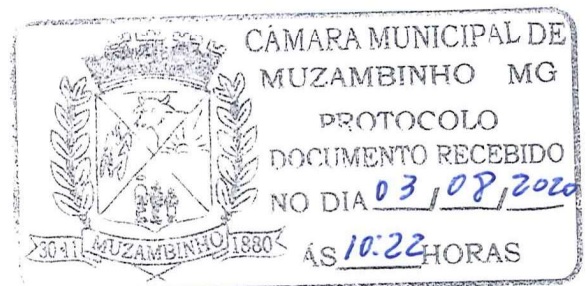 CÂMARA MUNICIPAL DE
MUZAMBINHO MG
PROTOCOLO
DOCUMENTO RECEBIDO
NO DIA 03/08/2020
ÁS 10:22 HORAS
30-11 MUZAMBINHO 1880